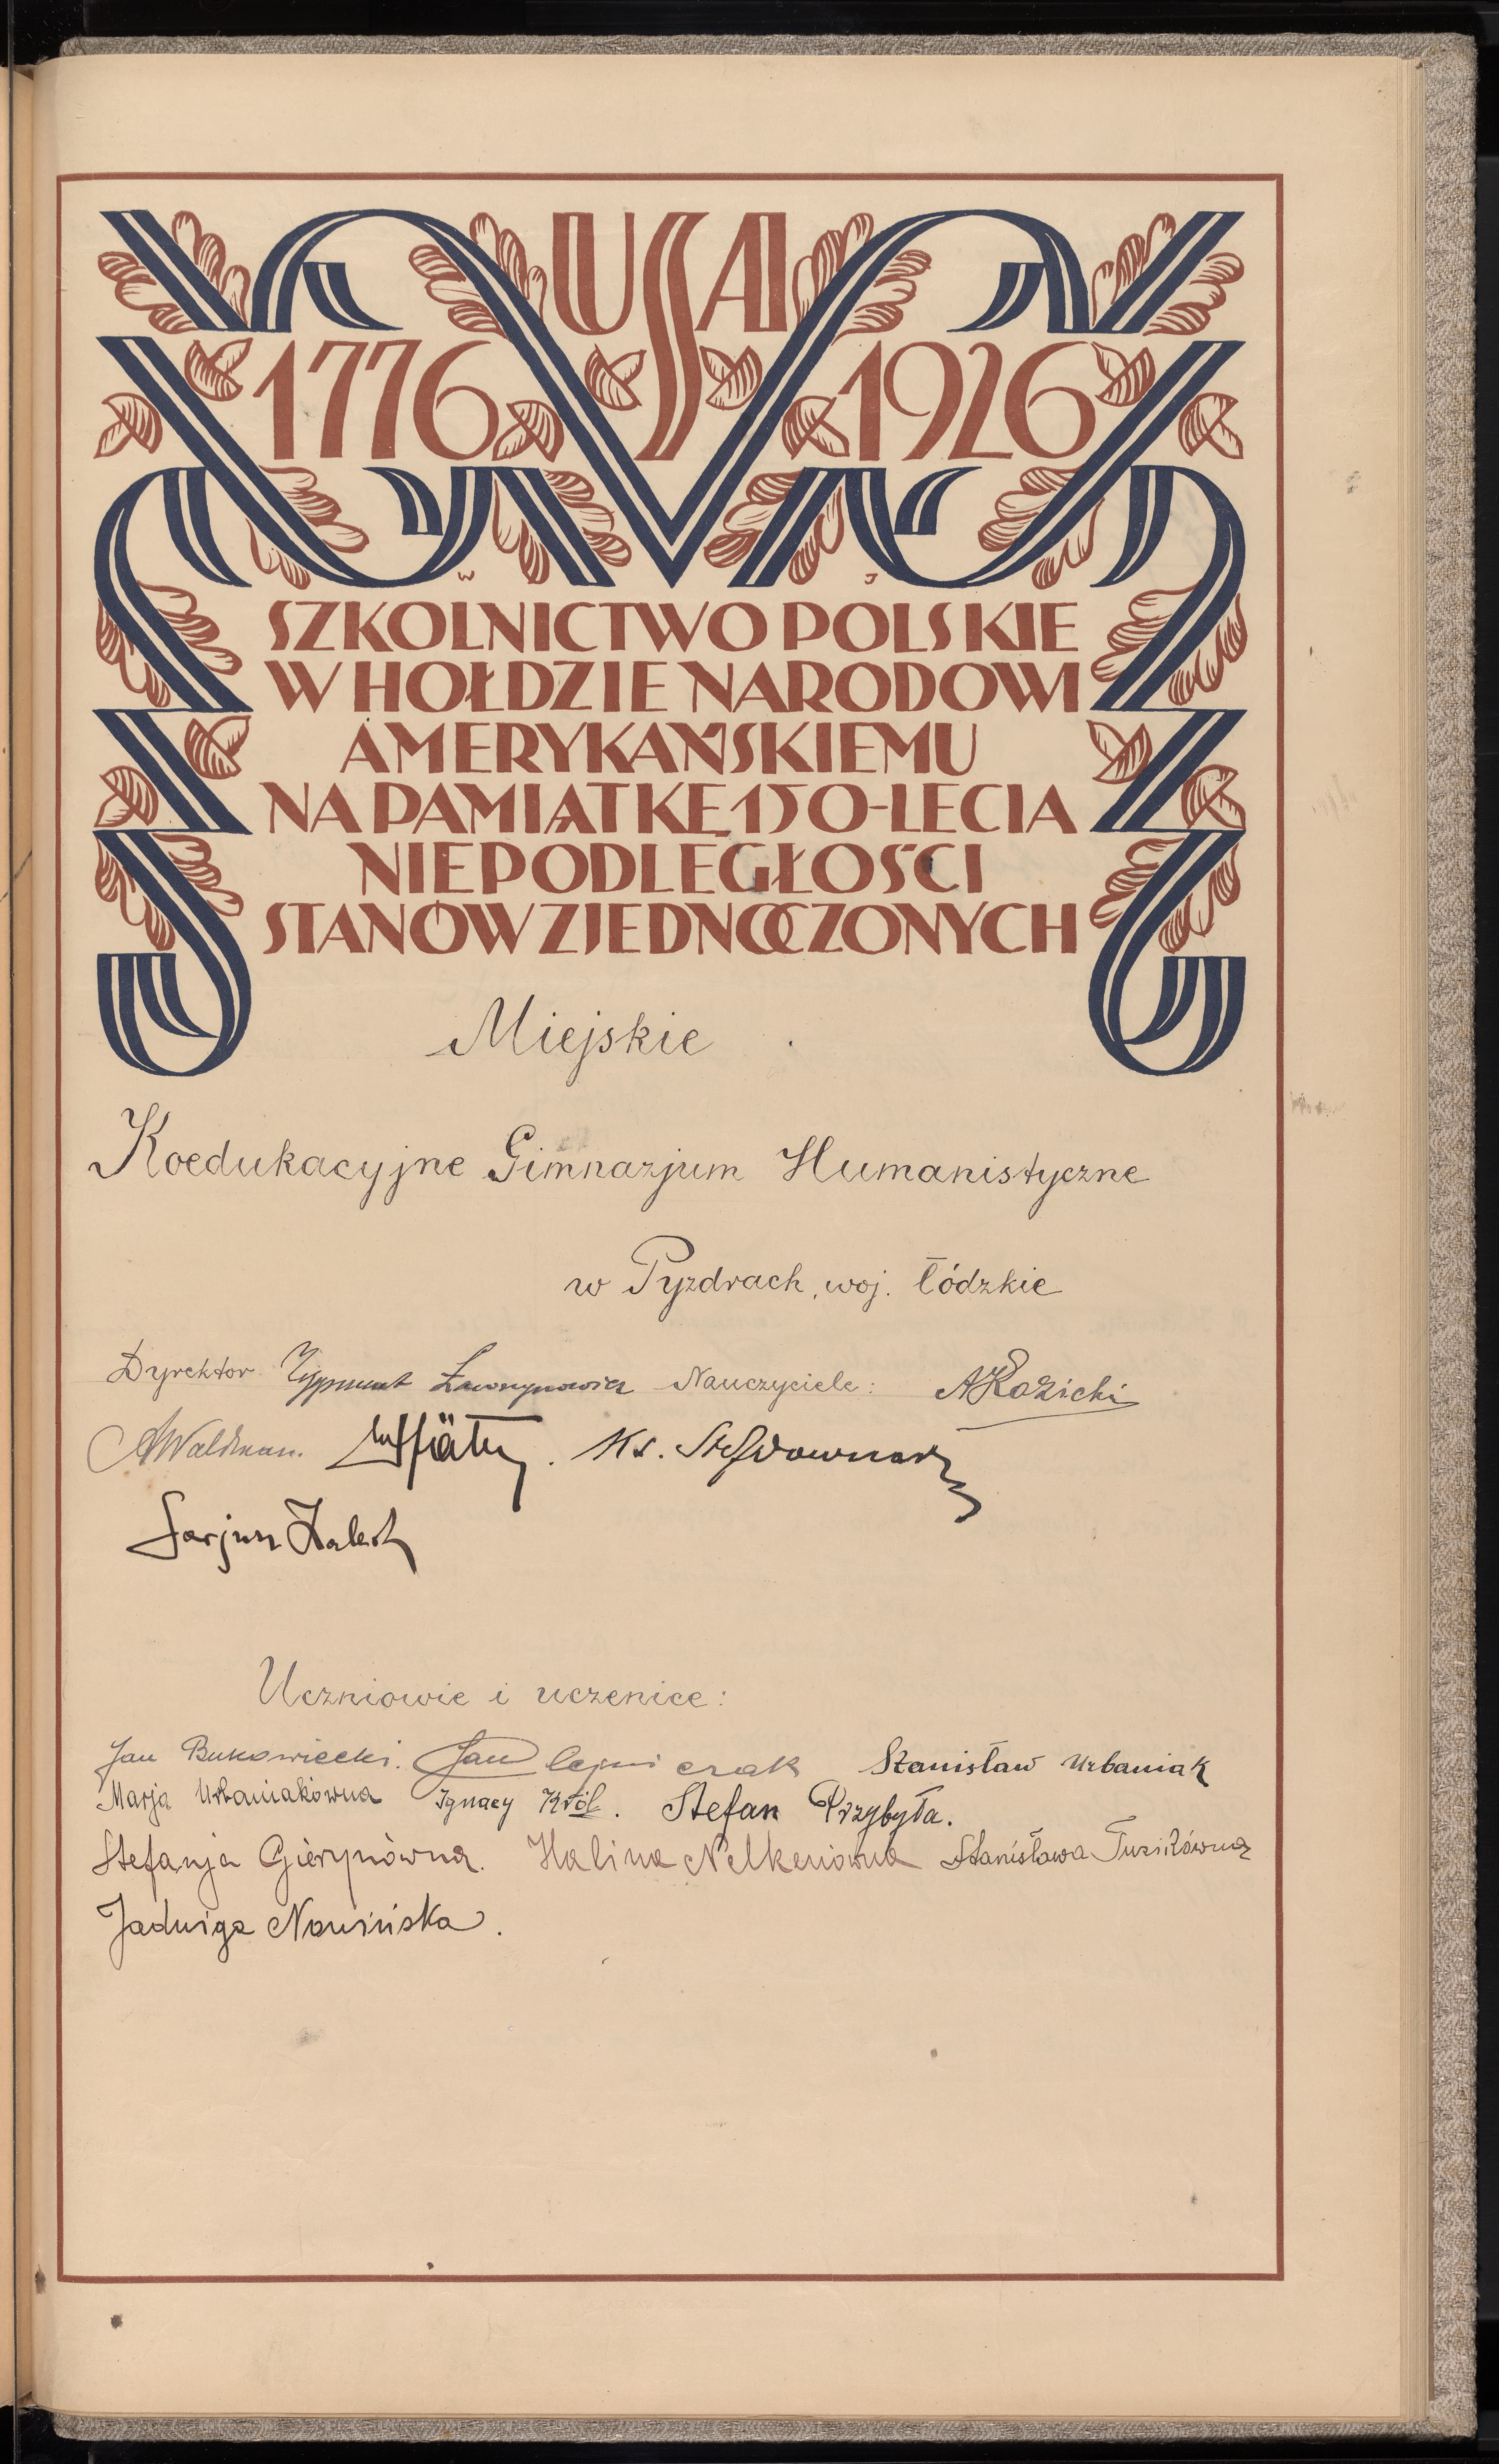 USA
1776 1926
W J
SZKOLNICTWO POLSKIE
W HOŁDZIE NARODOWI
AMERYKAŃSKIEMU
NA PAMIĄTKĘ 150-LECIA
NIEPODLEGŁOŚCI
STANÓW ZJEDNOCZONYCH
Miejskie
Koedukacyjne Gimnazjum Humanistyczne
w Pyzdrach, woj. łódzkie
Dyrektor Zygmunt Nauczyciele:
Ks.
Uczniowie i uczenice:
Jan Bukowiecki. Jan Stanisław Urbaniak
Marja Urbaniakówna Ignacy Król. Stefan Przybyła.
Stefanja Gierynówna. Halina Nelkenówna Stanisława
Jadwiga Nowińska.